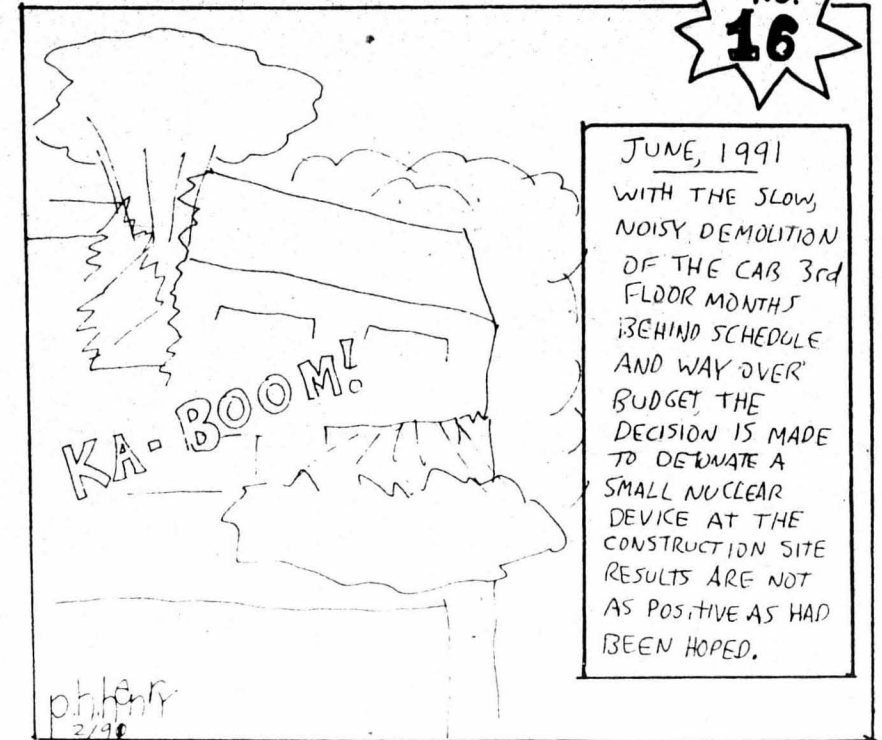 No.
16
JUNE, 1991
WITH THE SLOW,
NOISY DEMOLITION
OF THE CAB 3rd
FLOOR MONTHS
BEHIND SCHEDULE
AND WAY OVER
BUDGET, THE
DECISION IS MADE
TO DETONATE A
SMALL NUCLEAR
DEVICE AT THE
CONSTRUCTION SITE
RESULTS ARE NOT
AS POSITIVE AS HAD
BEEN HOPED.
KA-BOOM!
p.h.henry
2/90